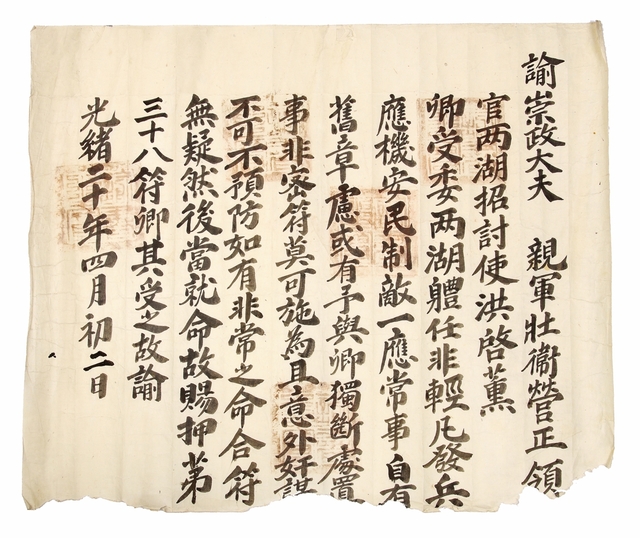 諭崇政大夫 親軍壯衛營正領
官两湖招討使洪啓薰
卿受委两湖軆任非輕凡發兵
應機安民制敵一應常事自有
舊章慮或有予與卿獨斷處置
事非密符莫可施為且意外奸謀
不可不預防如有非常之命合符
無疑然後當就命故賜押第
三十八符卿其受之故諭
光緒二十年四月初二日